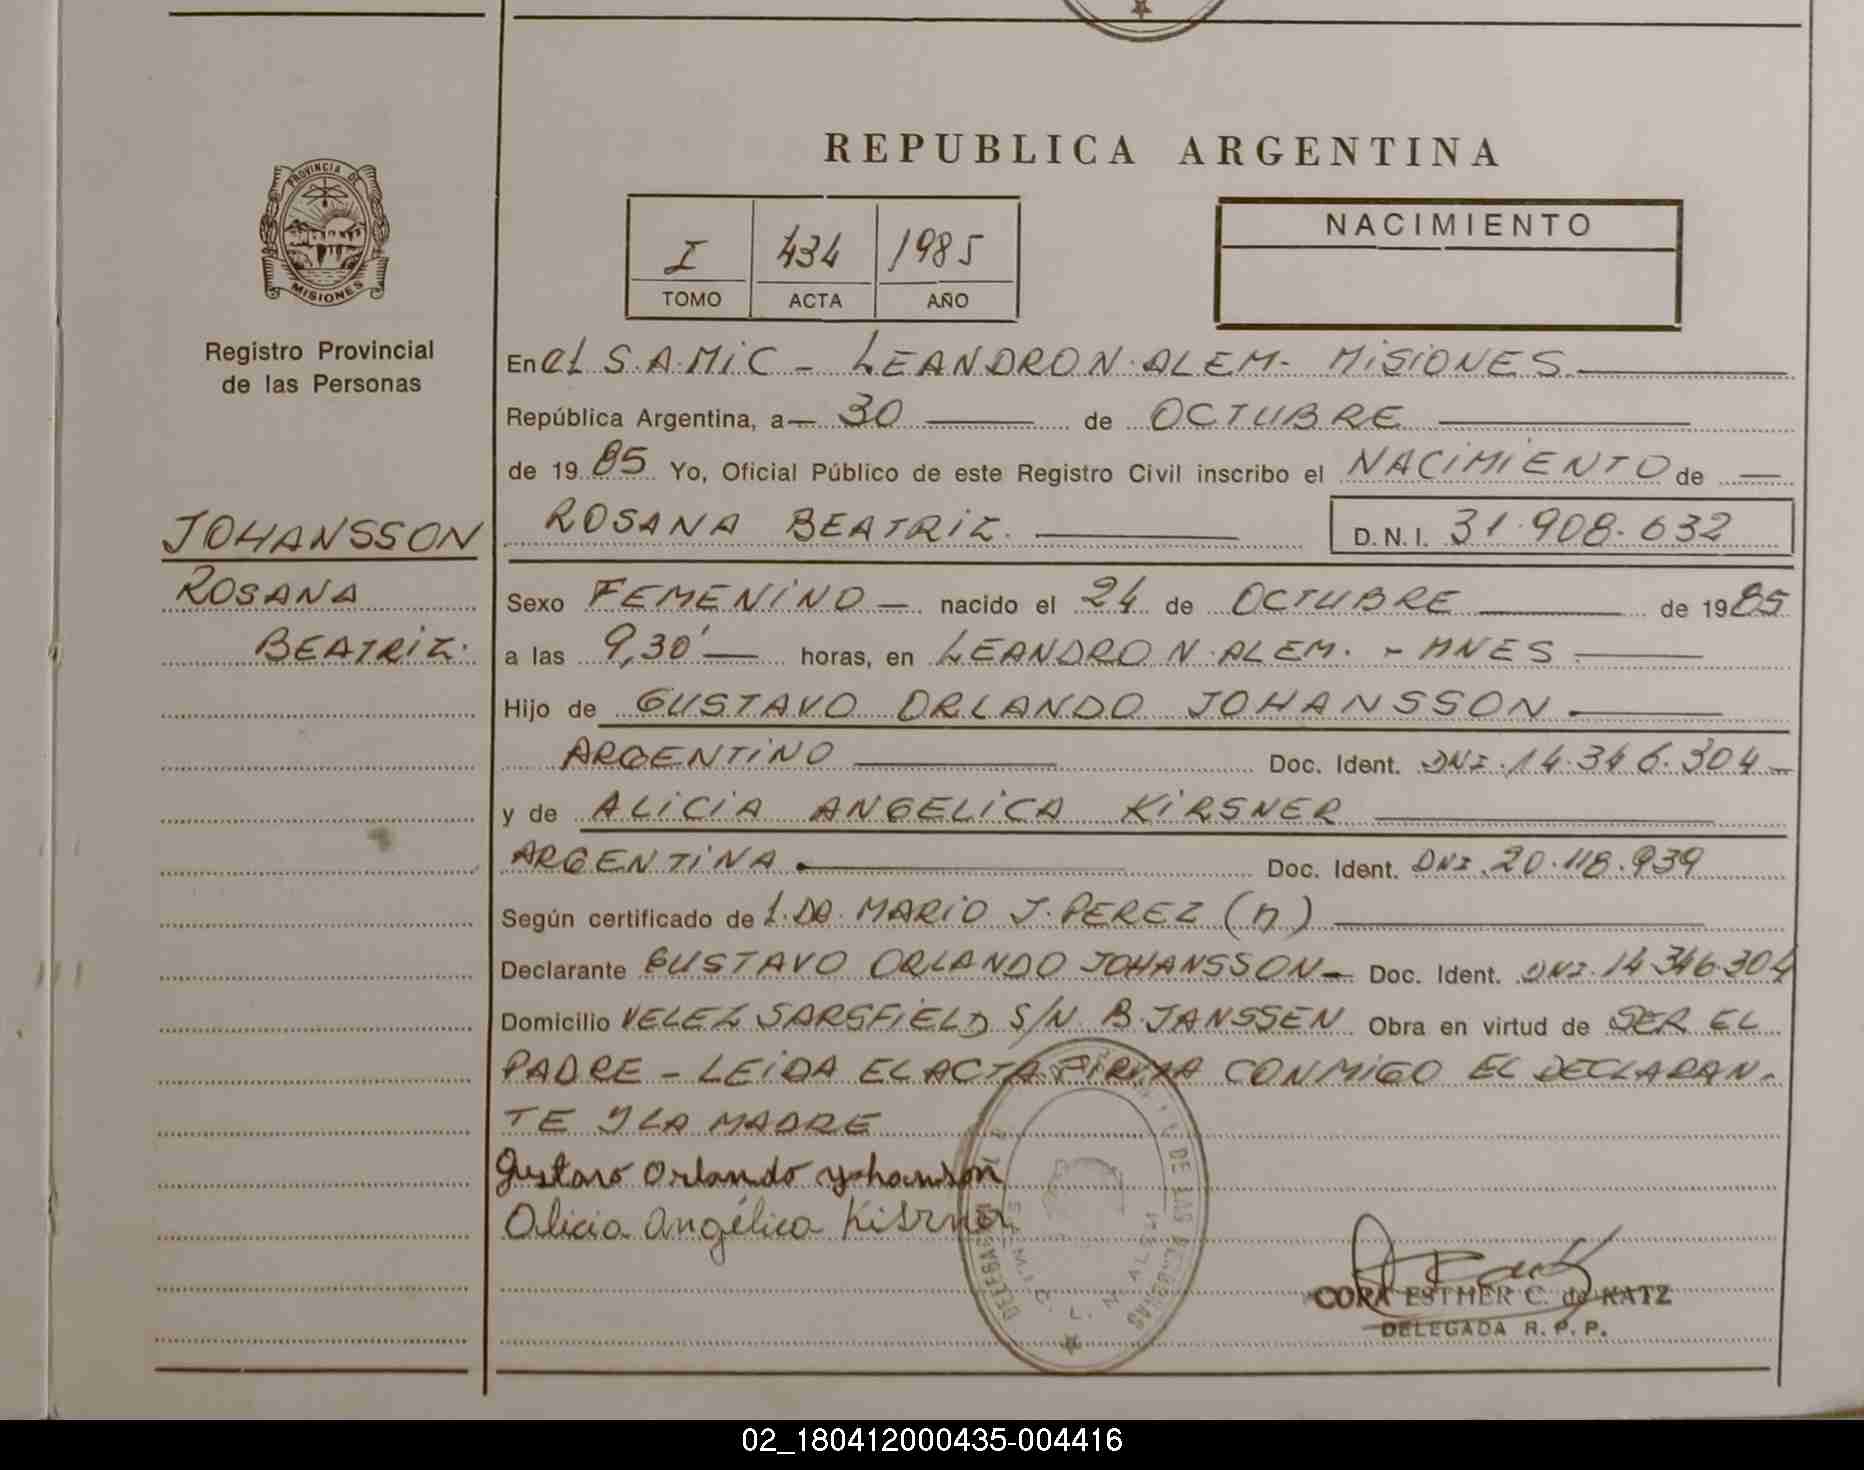 REPUBLICA ARGENTINA
PROVINCIA DE
MISIONES
Registro Provincial
de las Personas
I 434 1985
TOMO ACTA AÑO
NACIMIENTO
En el S.A.MiC - LEANDRO N. ALEM - MiSiONES
República Argentina, a 30 de OCTUBRE
de 1985 Yo, Oficial Público de este Registro Civil inscribo el NACiMiENTO de
ROSANA BEATRiZ. D.N.I. 31.908.632
JOHANSSON
ROSANA
BEATRiZ.
Sexo FEMENiNO - nacido el 24 de OCTUBRE de 1985
a las 9,30' horas, en LEANDRO N. ALEM. - MNES
Hijo de GUSTAVO ORLANDO JOHANSSON
ARGENTiNO Doc. Ident. DNI. 14.346.304
y de ALiCiA ANGELiCA KiRSNER
ARGENTiNA Doc. Ident. DNI. 20.118.939
Según certificado de MARiO J. PEREZ (n)
Declarante GUSTAVO ORLANDO JOHANSSON - Doc. Ident. DNI. 14.346.304
Domicilio VELEZ SARSFiELD S/N B. JANSSEN Obra en virtud de SER EL
PADRE - LEiDA EL ACTA FiRMA CONMiGO EL DECLARAN-
TE Y LA MADRE
Gustavo Orlando Yohanson
Alicia Angélica Kirsner
DE LAS PERSONAS
S.A.M.I.C. L. N. ALEM
CORA ESTHER C. de KATZ
DELEGADA R. P. P.
02_180412000435-004416